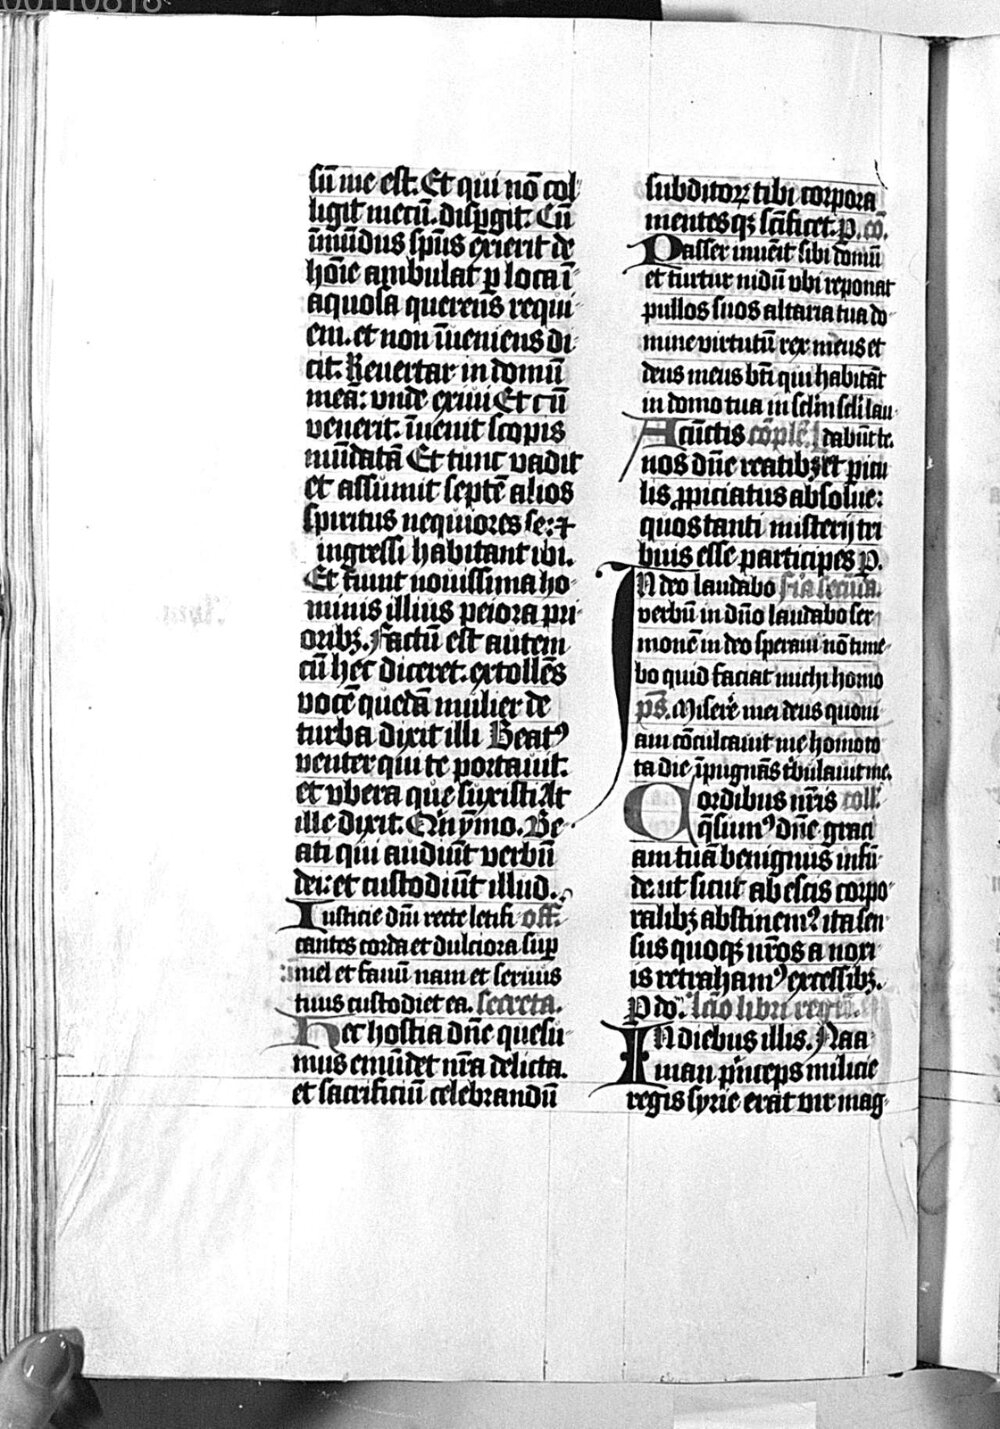 sū me est. Et qui nō col
ligit mecū. dispgit: Cū
īmūdus spūs exierit de
hōīe ambulat p loca ī
aquosa querens requi
em. et non īueniens di
cit: Reuertar in domū
meā: vnde exiui Et cū
venerit. īuenit scopis
mūdatā Et tunc vadit
et assumit septē alios
spiritus nequiores se: ⁊
ingressi habitant ibi.
Et fiunt nouissima ho
minis illius peiora pri
oribꝫ. Factū est autem
cū hec diceret: extollēs
vocē quedā mulier de
turba dixit illi Beatꝰ
venter qui te portauit:
et vbera que suxisti At
ille dixit. Qīnymo. Be
ati qui audiūt verbū
dei: et custodiūt illud.
Iusticie dnī recte letifi off.
cantes corda et dulciora sup
mel et fauū nam et seruus
tuus custodiet ea. secreta.
Hec hostia dn̄e quesu
mus emūdet nr̄a delicta.
et sacrificiū celebrandū
subditoꝝ tibi corpora
mentesqꝫ sc̄ificet. P. cō.
Passer inuēit sibi domū
et turtur nidū vbi reponat
pullos suos altaria tua do
mine virtutū rex meus et
deus meus bt̄i qui habitāt
in domo tua in sclm̄ scl̄i lau
A cūctis cōplē. dabūt te.
nos dn̄e reatibꝫ et picu
lis ꝓpiciatus absolue:
quos tanti misterij tri
buis esse participes P.
In deo laudabo fia secūda.
verbū in dn̄o laudabo ser
monē in deo speraui nō time
bo quid faciat michi homo
ps̄. Miserē mei deus quoni
am cōculcauit me homo to
ta die īpugnās tbulauit me.
Cordibus nr̄is coll.
q̄sumꝰ dn̄e graci
am tuā benignus infū
de. ut sicut ab escis corpo
ralibꝫ abstinemꝰ ita sen
sus quoqꝫ nr̄os a noxi
is retrahamꝰ excessibꝫ.
P do. lc̄io libri regū.
In diebus illis. Naa
man p̄nceps milicie
regis syrie erat vir mag